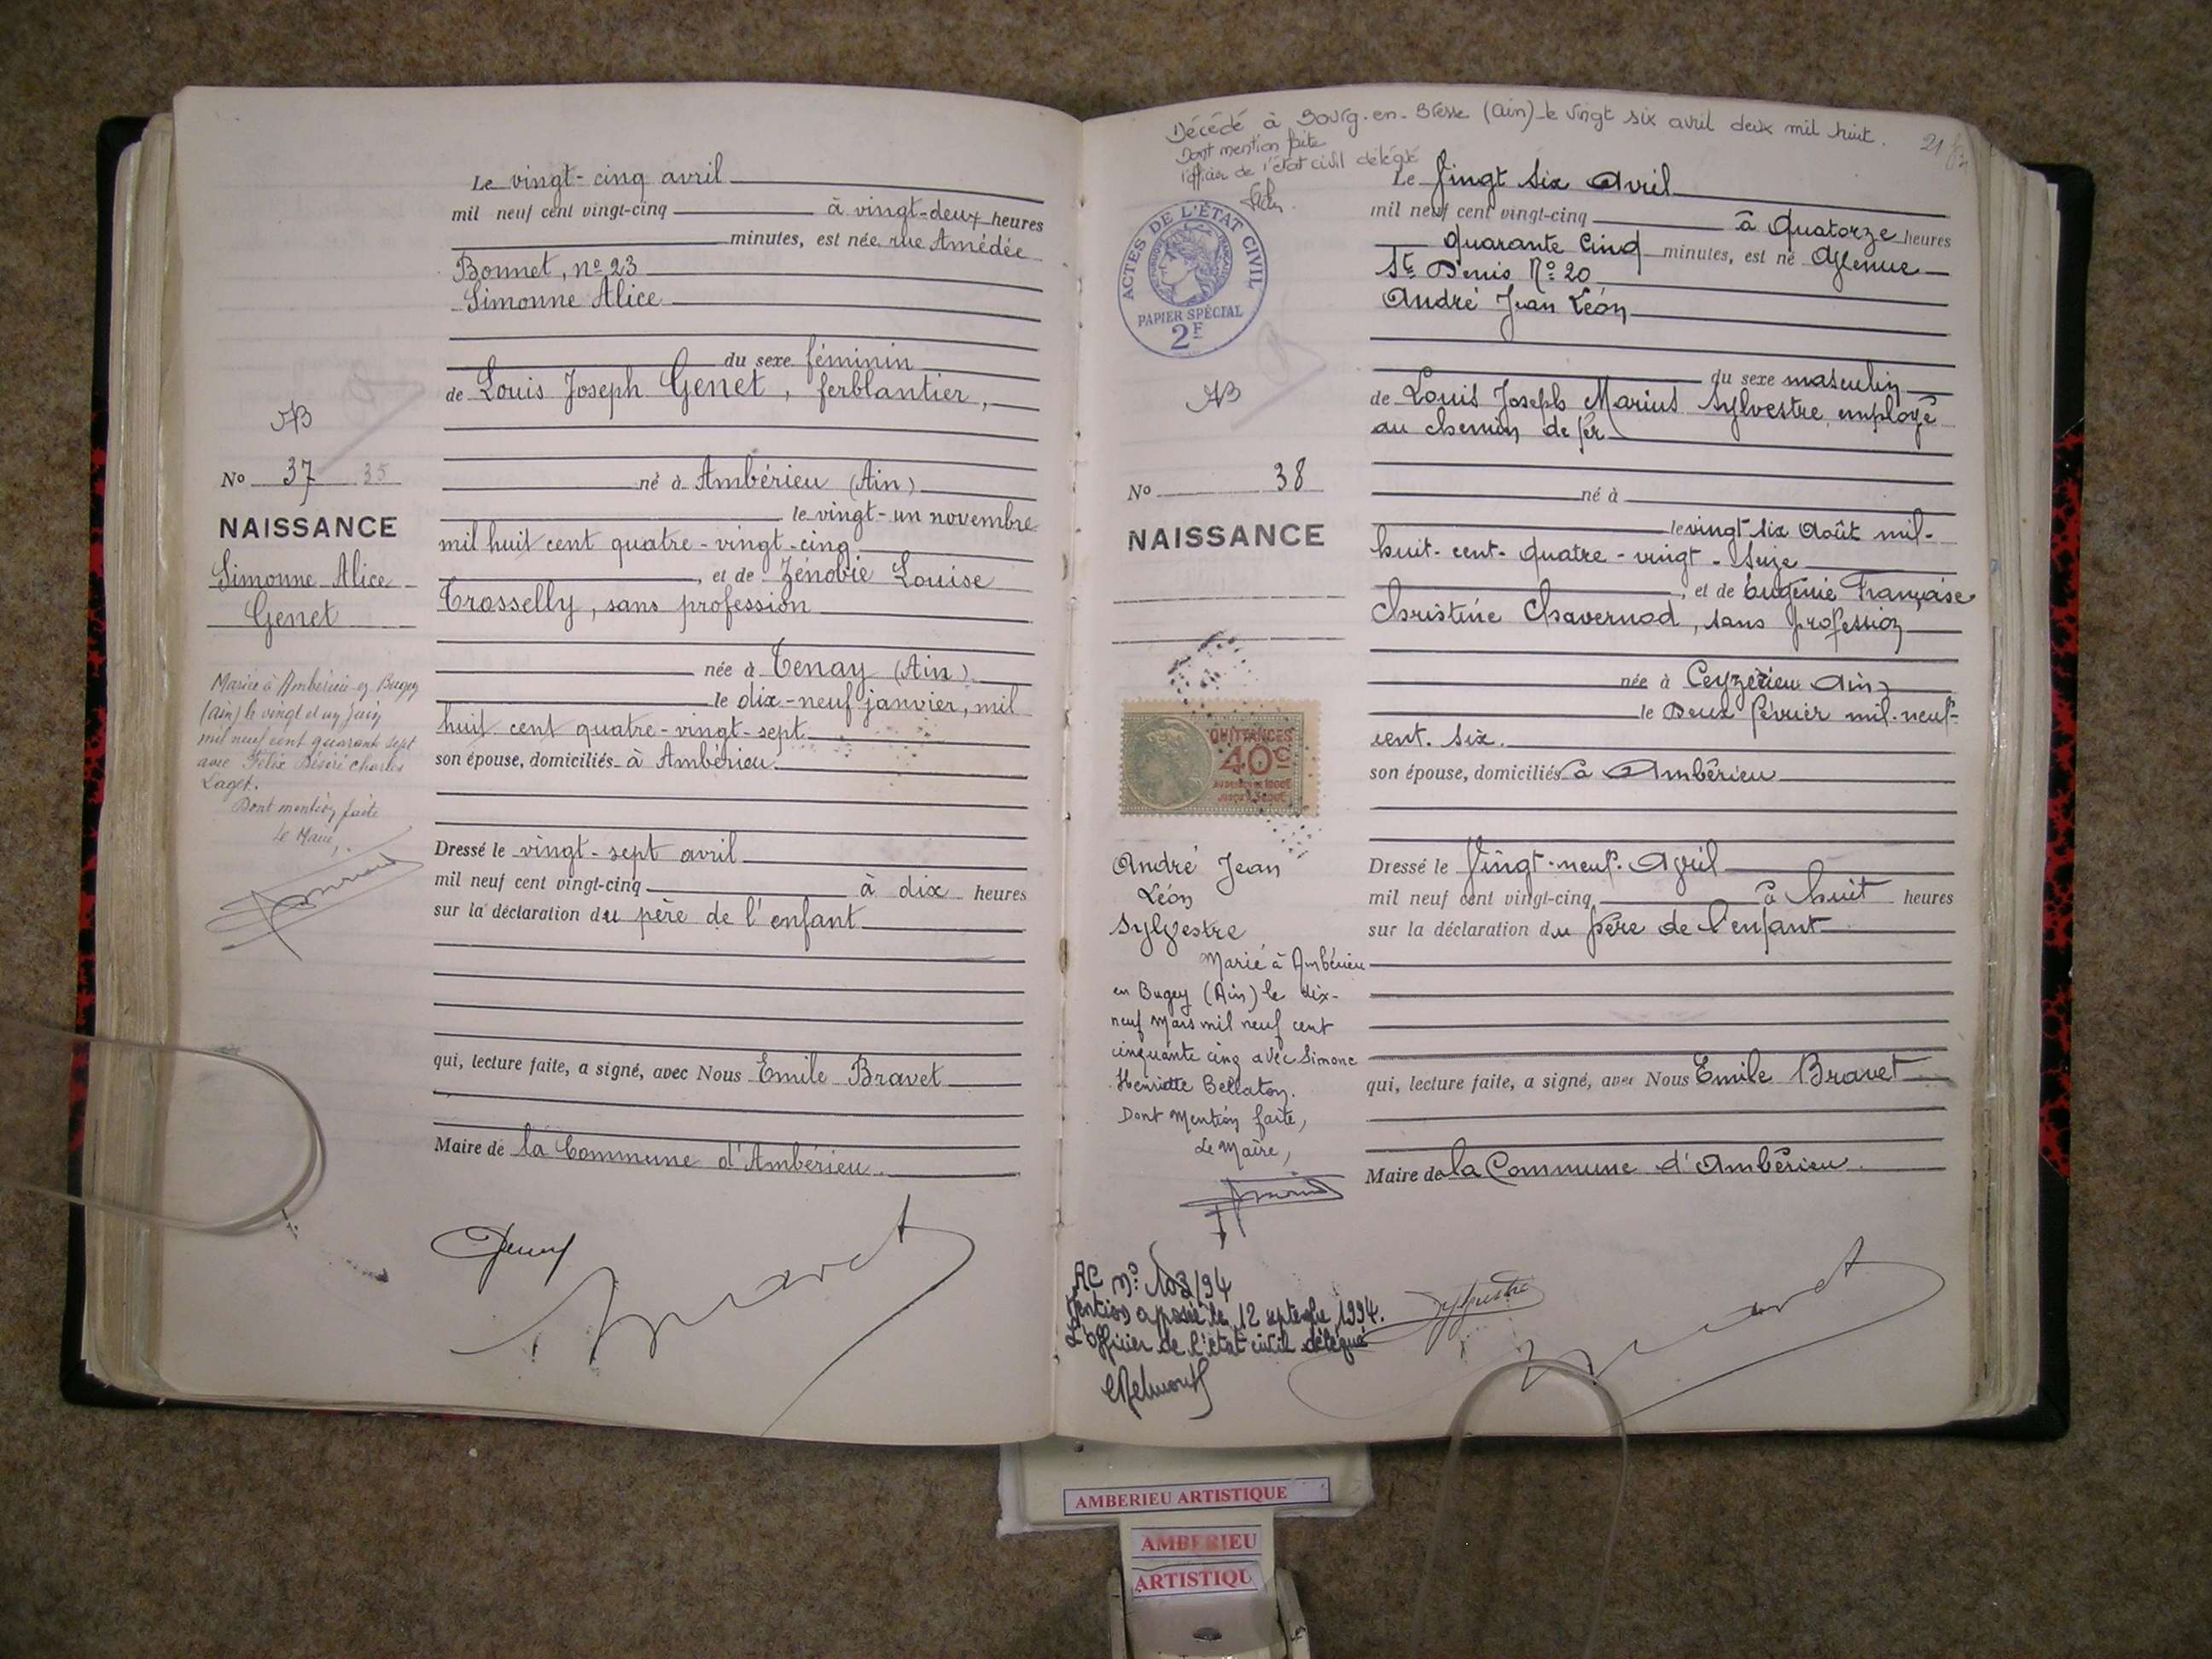 Le vingt-cinq avril
mil neuf cent vingt-cinq à vingt-deux heures
minutes, est née rue Amédée
Bonnet, nº 23
Simonne Alice
du sexe féminin
de Louis Joseph Genet, ferblantier,
né à Ambérieu (Ain)
le vingt-un novembre
mil huit cent quatre-vingt-cinq
, et de Zénobie Louise
Trosselly, sans profession
née à Tenay (Ain)
le dix-neuf janvier, mil
huit cent quatre-vingt-sept
son épouse, domiciliés à Ambérieu.
Dressé le vingt-sept avril
mil neuf cent vingt-cinq à dix heures
sur la déclaration du père de l'enfant
qui, lecture faite, a signé, avec Nous Emile Bravet
Maire de la Commune d'Ambérieu.
Bravet
AB
No 37 35
NAISSANCE
Simonne Alice
Genet
Mariée à Ambérieu-en-Bugey
(Ain) le vingt et un juin
mil neuf cent quarante sept
avec Félix Désiré Charles
Laget.
Dont mention faite
Le Maire,
Décédé à Bourg-en-Bresse (Ain) le vingt six avril deux mil huit.
Dont mention faite
l'officier de l'état civil délégué
21
ACTES DE L'ÉTAT CIVIL
PAPIER SPÉCIAL
2F
AB
No 38
NAISSANCE
QUITTANCES
40c
André Jean
Léon
Sylvestre
Marié à Ambérieu
en Bugey (Ain) le dix-
neuf Mars mil neuf cent
cinquante cinq avec Simone
Henriette Bellaton.
Dont Mention faite,
Le Maire,
AC nº: 103/94
Mention apposée le 12 septembre 1994.
L'officier de l'état civil délégué
Le Vingt six Avril
mil neuf cent vingt-cinq à Quatorze heures
quarante cinq minutes, est né Avenue
St Denis Nº 20
André Jean Léon
du sexe masculin
de Louis Joseph Marius Sylvestre, employé
au chemin de fer
né à
le vingt six Août mil-
huit-cent-quatre-vingt-seize
, et de Eugénie Françoise
Christine Chavernod, sans profession
née à Ceyzérieu Ain
le Deux février mil-neuf-
cent-six.
son épouse, domiciliés à Ambérieu
Dressé le Vingt-neuf-Avril
mil neuf cent vingt-cinq à huit heures
sur la déclaration du père de l'enfant
qui, lecture faite, a signé, avec Nous Emile Bravet
Maire de la Commune d'Ambérieu.
Sylvestre
Bravet
AMBERIEU ARTISTIQUE
AMBERIEU
ARTISTIQU